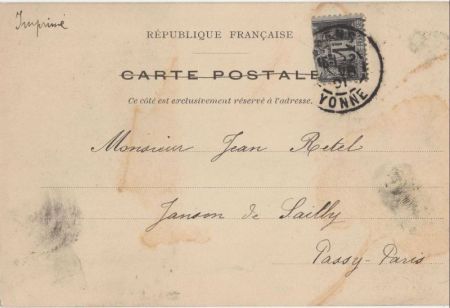 Imprimé
RÉPUBLIQUE FRANÇAISE
CARTE POSTALE
Ce côté est exclusivement réservé à l'adresse.
YONNE
Monsieur Jean Retel
Janson de Sailly
Passy-Paris